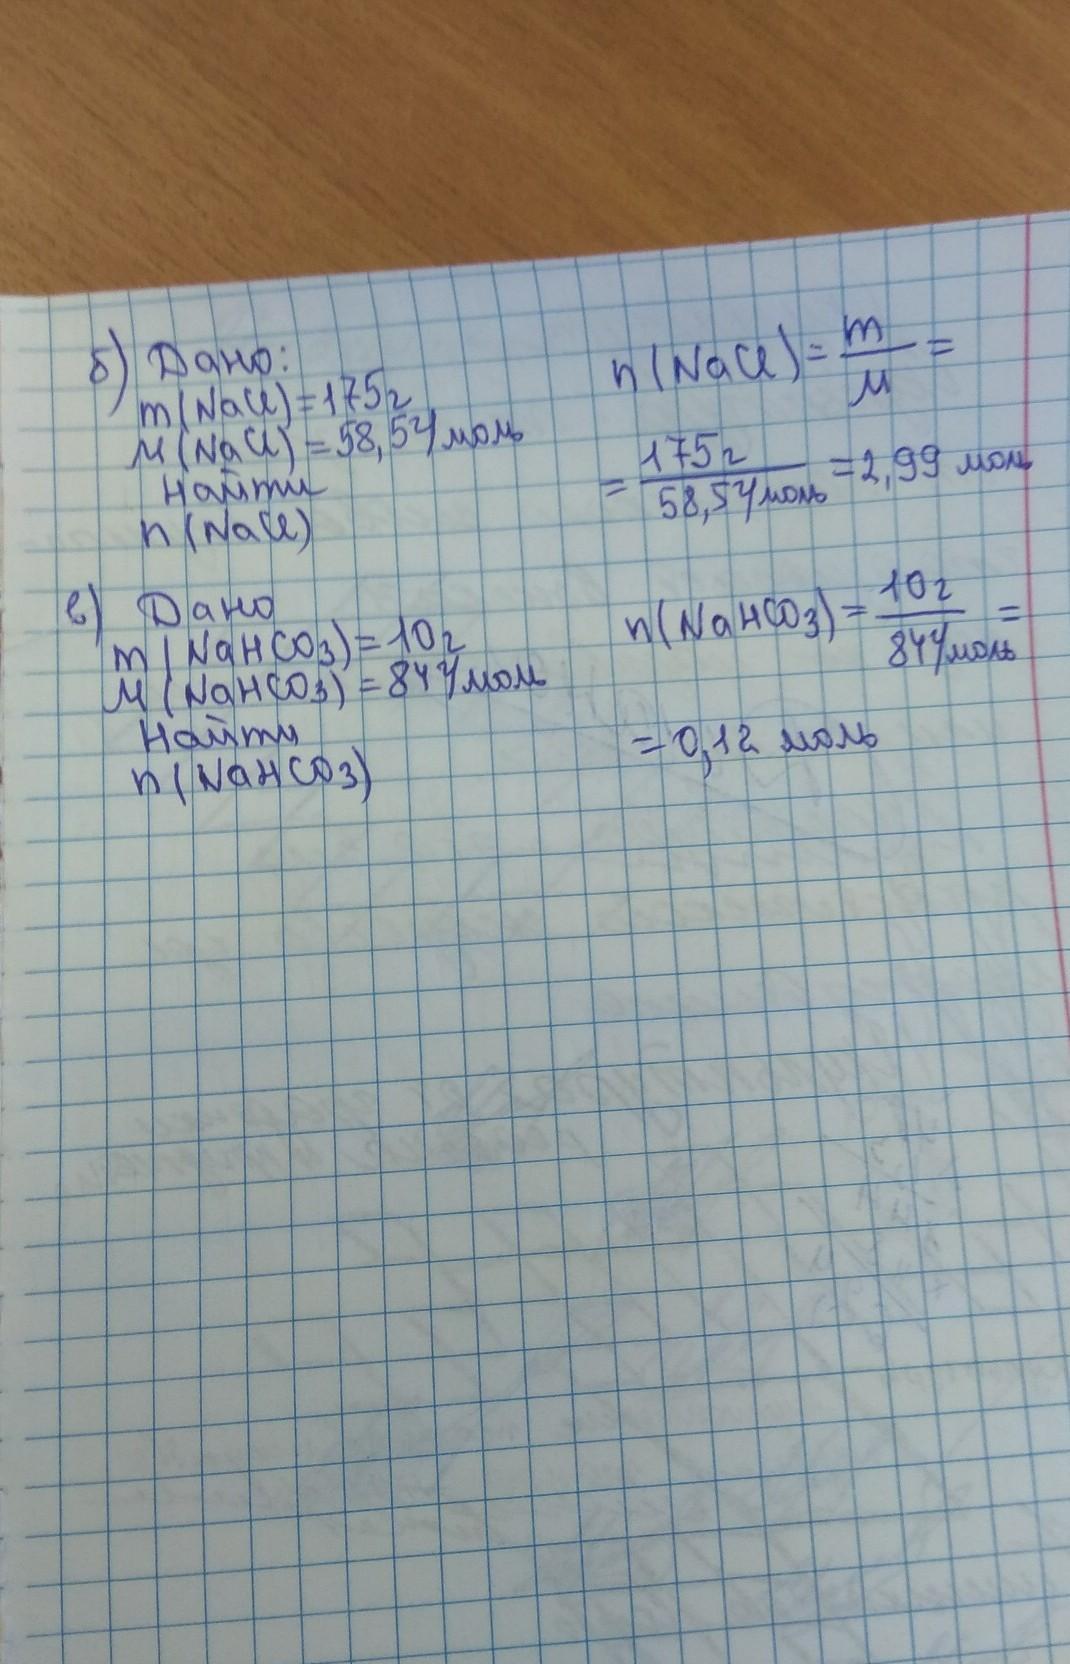 б) Дано:
m(NaCl)=175г
M(NaCl)=58,5г/моль
Найти
n(NaCl)
n(NaCl)=m/M=
=175г/58,5г/моль=2,99 моль
в) Дано
m(NaHCO3)=10г
M(NaHCO3)=84г/моль
Найти
n(NaHCO3)
n(NaHCO3)=10г/84г/моль=
=0,12 моль